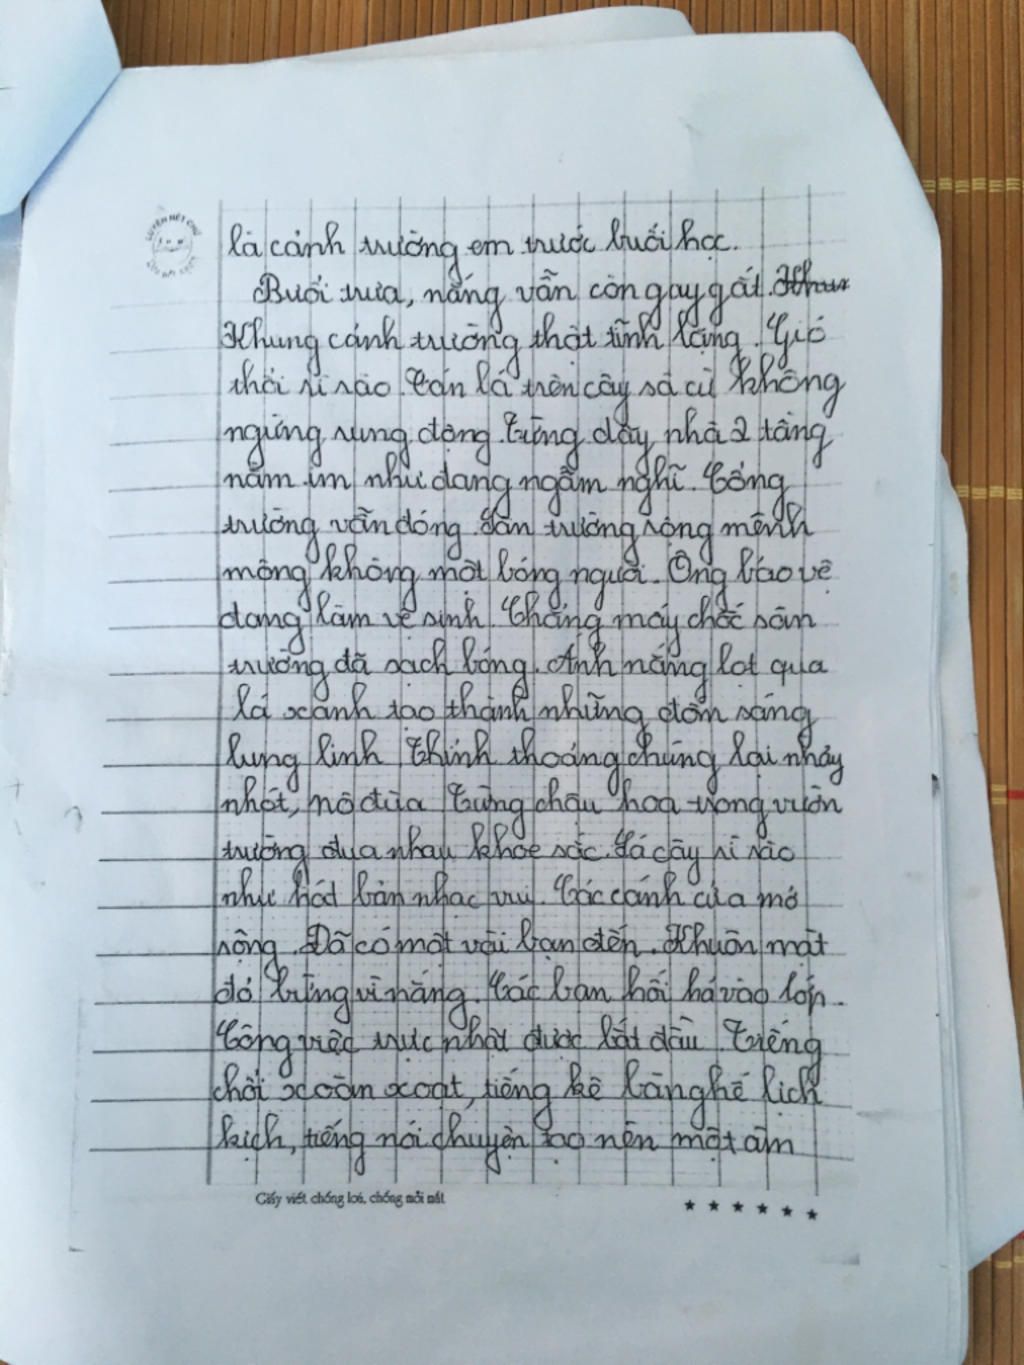 LUYỆN NÉT CHỮ
là cảnh trường em trước buổi học.
Buổi trưa, nắng vẫn còn gay gắt.
Khung cảnh trường thật tĩnh lặng. Gió
thổi rì rào. Tán lá trên cây sà cừ không
ngừng rung động. Từng dãy nhà 2 tầng
nằm im như đang ngẫm nghĩ. Cổng
trường vẫn đóng. Sân trường rộng mênh
mông không một bóng người. Ông bảo vệ
đang làm vệ sinh. Chẳng mấy chốc sân
trường đã sạch bóng. Ánh nắng lọt qua
lá xanh tạo thành những đốm sáng
lung linh. Thỉnh thoảng chúng lại nhảy
nhót, nô đùa. Từng chậu hoa trong vườn
trường đua nhau khoe sắc. Lá cây rì rào
như hát bản nhạc vui. Các cánh cửa mở
rộng. Đã có một vài bạn đến. Khuôn mặt
đỏ bừng vì nắng. Các bạn hối hả vào lớp.
Công việc trực nhật được bắt đầu. Tiếng
chổi xoàn xoạt, tiếng kê bàn ghế lịch
kịch, tiếng nói chuyện tạo nên một âm
Giấy viết chống loá, chống mỏi mắt